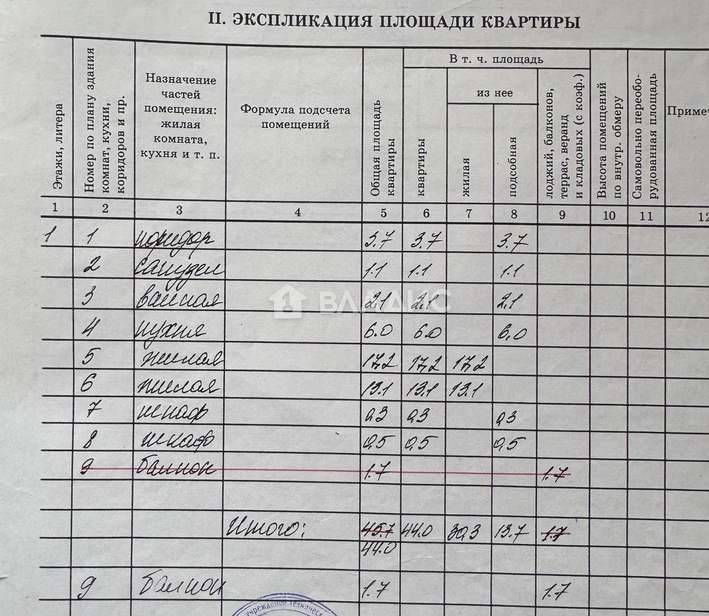 II. ЭКСПЛИКАЦИЯ ПЛОЩАДИ КВАРТИРЫ
Этажи, литера
Номер по плану здания комнат, кухни, коридоров и пр.
Назначение частей помещения: жилая комната, кухня и т. п.
Формула подсчета помещений
Общая площадь квартиры
В т. ч. площадь
квартиры
из нее
жилая
подсобная
лоджий, балконов, террас, веранд и кладовых (с коэф.)
Высота помещений по внутр. обмеру
Самовольно переоборудованная площадь
Примеч
1 2 3 4 5 6 7 8 9 10 11 12
1 1 коридор 3.7 3.7 3.7
2 санузел 1.1 1.1 1.1
3 ванная 2.1 2.1 2.1
4 кухня 6.0 6.0 6.0
5 жилая 17,2 17,2 17,2
6 жилая 13.1 13.1 13.1
7 шкаф 0,3 0,3 0,3
8 шкаф 0,5 0,5 0,5
9 балкон 1.7 1.7
Итого: 45.7 44.0 30,3 13.7 1.7
44.0
9 балкон 1.7 1.7
ВАЛАНС